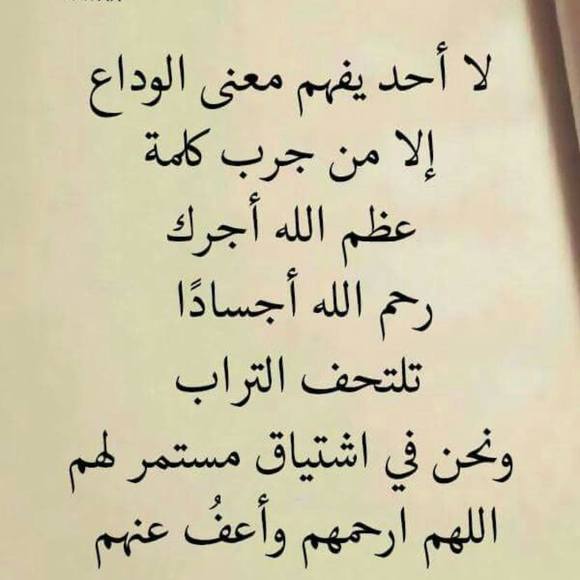 لا أحد يفهم معنى الوداع
إلا من جرب كلمة
عظم الله أجرك
رحم الله أجسادًا
تلتحف التراب
ونحن في اشتياق مستمر لهم
اللهم ارحمهم وأعفُ عنهم